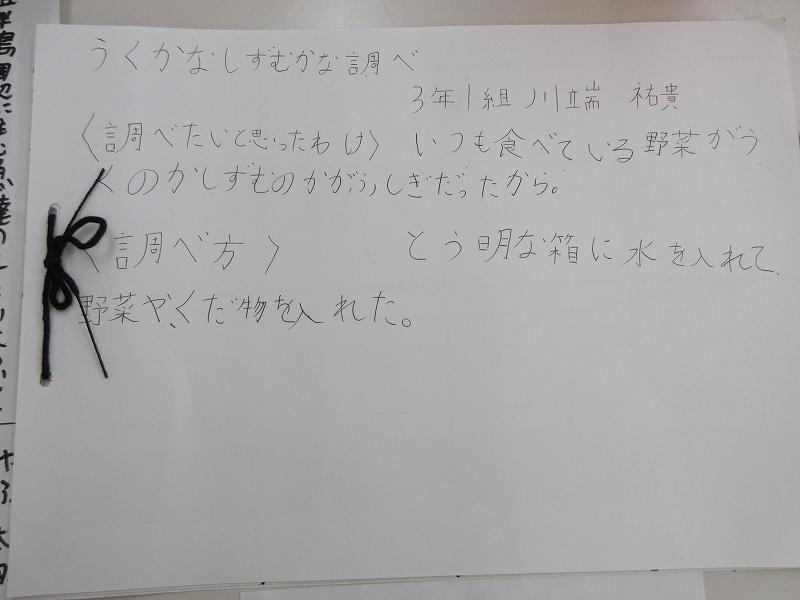 うくかなしずむかな調べ
3年1組 川端 祐貴
〈調べたいと思ったわけ〉 いつも食べている野菜がう
くのかしずむのかがふしぎだったから。
〈調べ方〉 とう明な箱に水を入れて、
野菜や、くだ物を入れた。